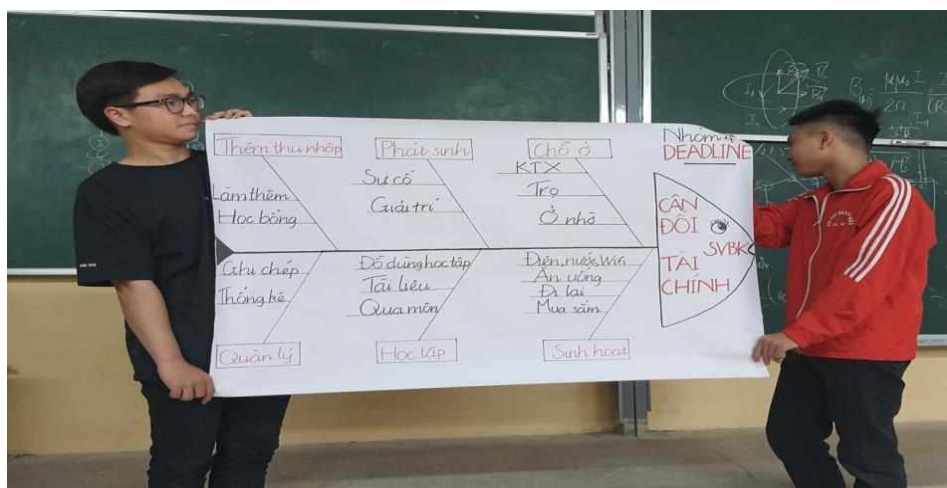 Nhóm
DEADLINE
Thêm thu nhập
Làm thêm
Học bổng
Phát sinh
Sự cố
Giải trí
Chỗ ở
KTX
Trọ
Ở nhà
CÂN
ĐỐI
SVBK
TÀI
CHÍNH
Ghi chép
Thống kê
Quản lý
Đồ dùng học tập
Tài liệu
Qua môn
Học tập
Điện, nước, Wifi
Ăn uống
Đi lại
Mua sắm
Sinh hoạt